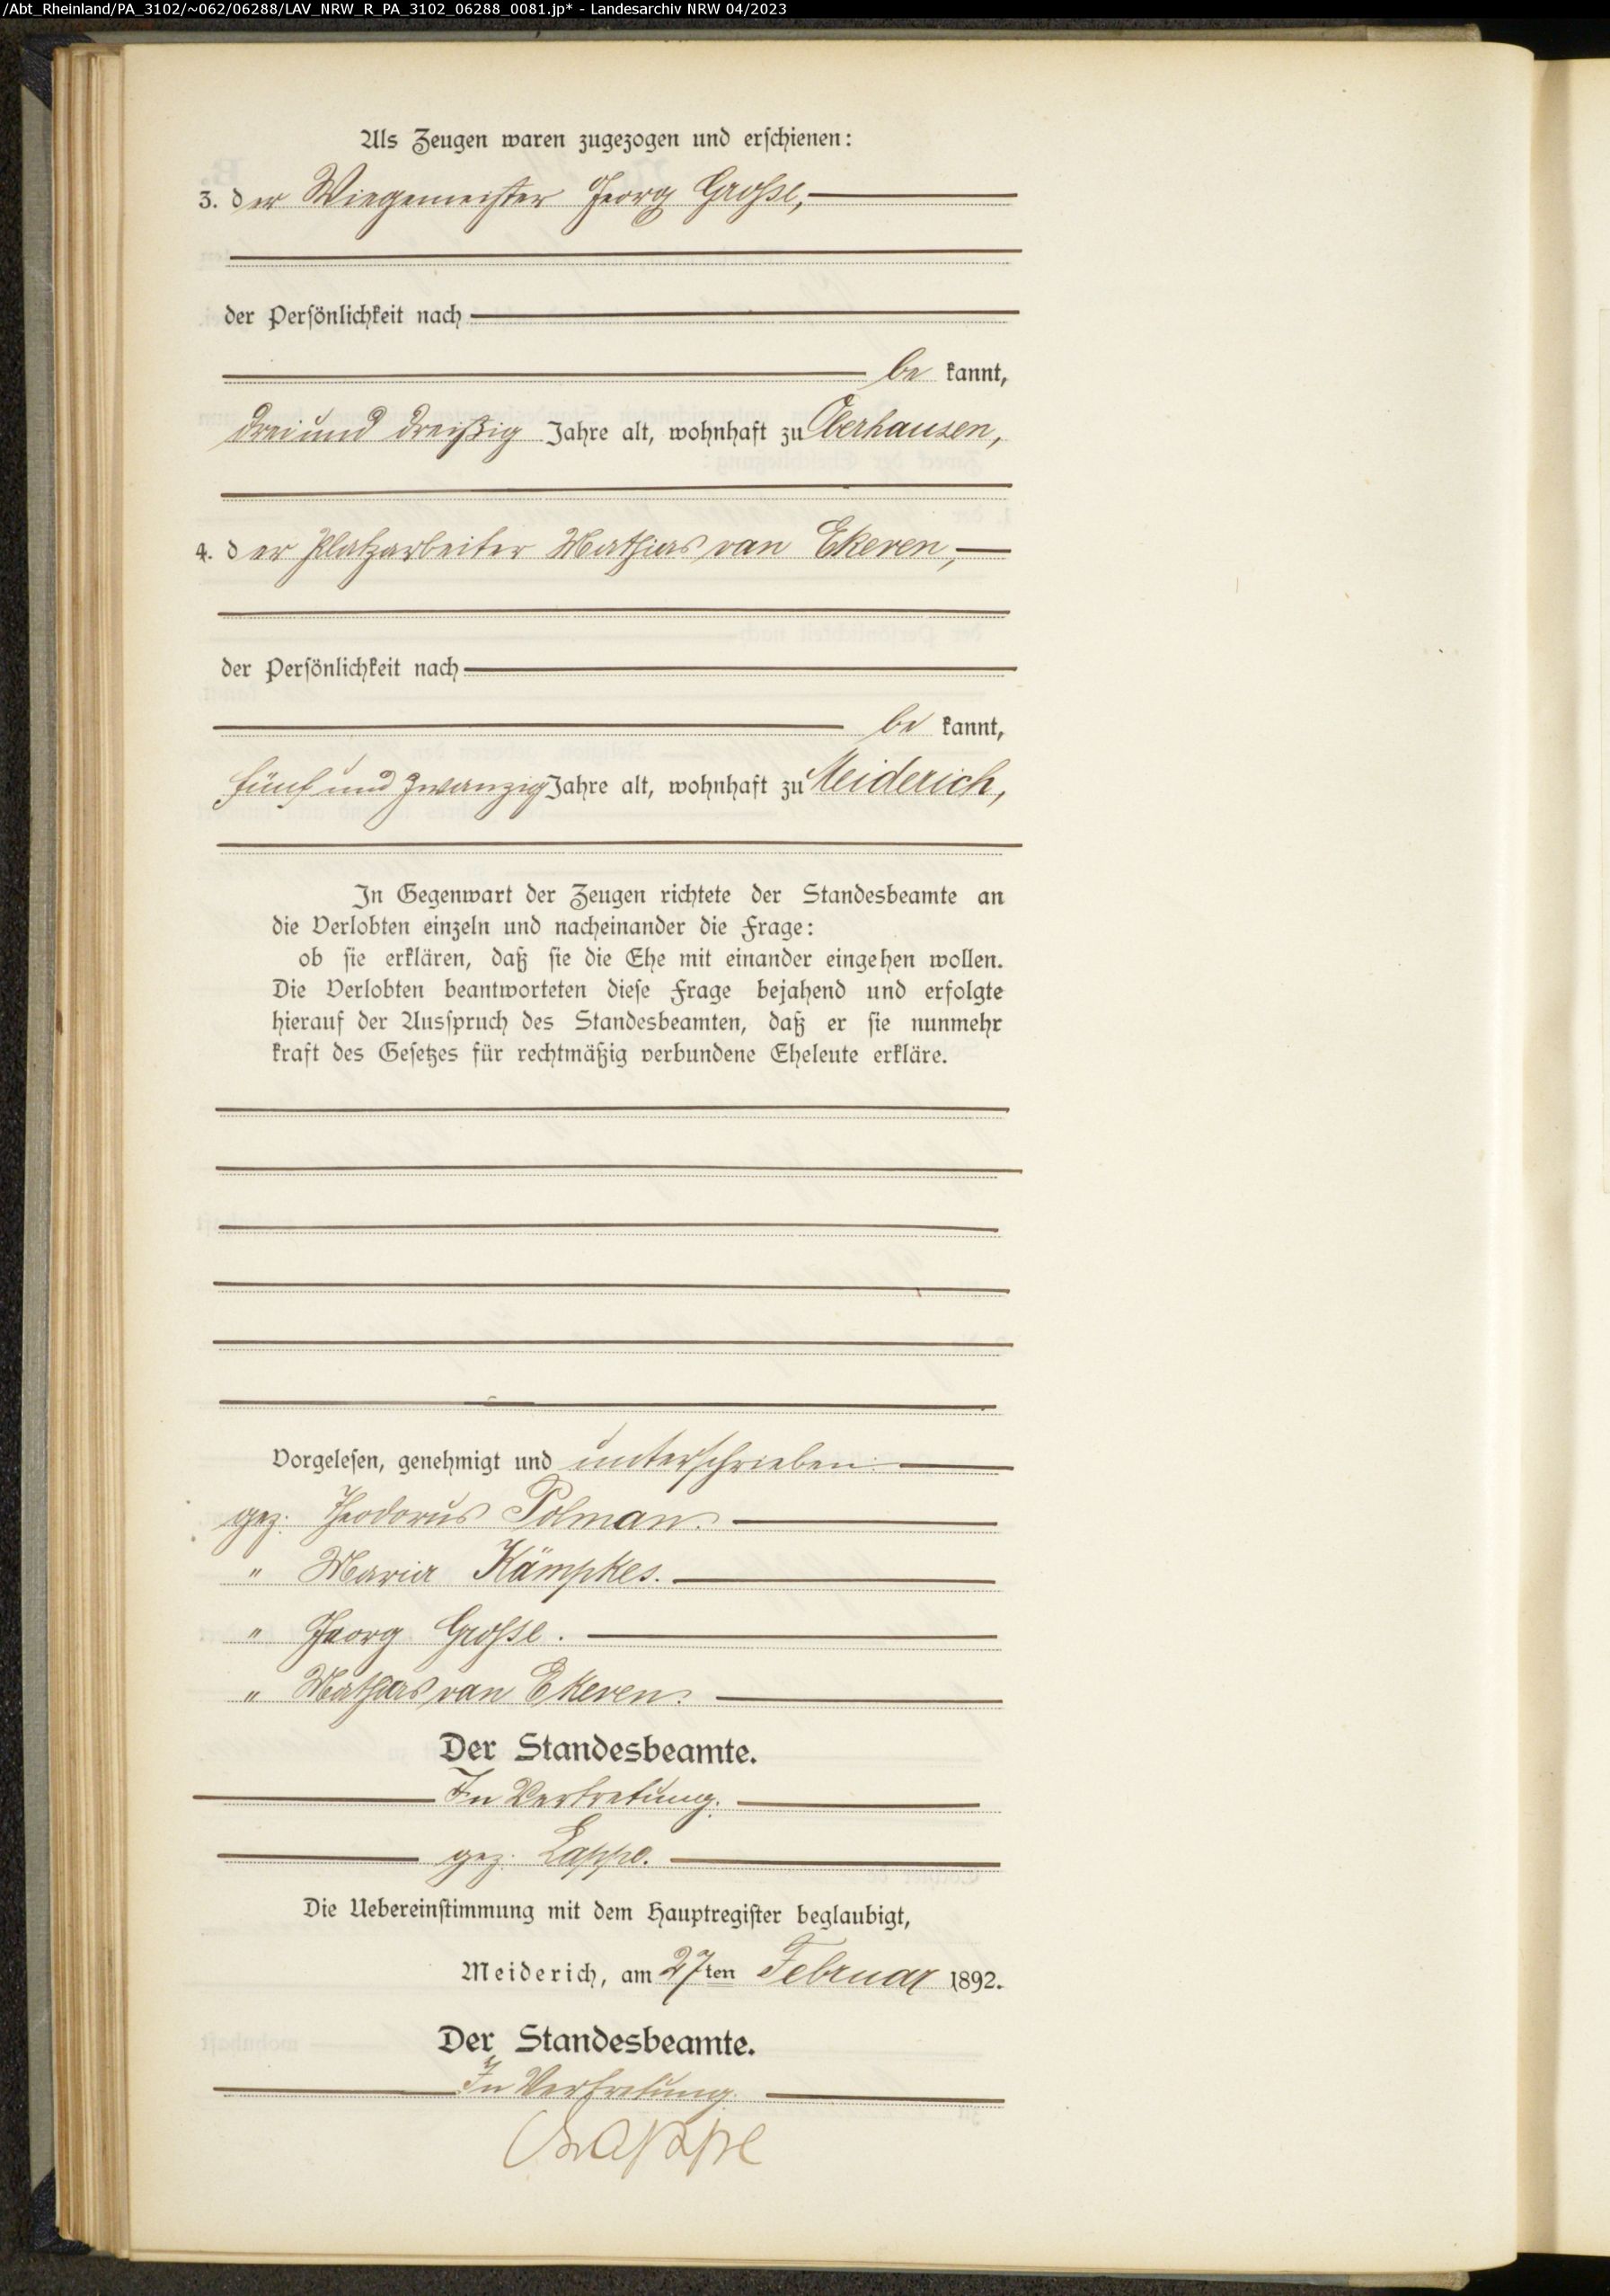 /Abt_Rheinland/PA_3102/~062/06288/LAV_NRW_R_PA_3102_06288_0081.jp* - Landesarchiv NRW 04/2023
Als Zeugen waren zugezogen und erschienen:
3. der Wiegemeister Georg Große,
der Persönlichkeit nach
bekannt,
drei und dreißig Jahre alt, wohnhaft zu Oberhausen,
4. der Platzarbeiter Mathias van Ekeren,
der Persönlichkeit nach
bekannt,
fünf und zwanzig Jahre alt, wohnhaft zu Meiderich,
In Gegenwart der Zeugen richtete der Standesbeamte an
die Verlobten einzeln und nacheinander die Frage:
ob sie erklären, daß sie die Ehe mit einander eingehen wollen.
Die Verlobten beantworteten diese Frage bejahend und erfolgte
hierauf der Ausspruch des Standesbeamten, daß er sie nunmehr
kraft des Gesetzes für rechtmäßig verbundene Eheleute erkläre.
Vorgelesen, genehmigt und unterschrieben.
gez. Theodorus Polman.
" Maria Kämpkes.
" Georg Große.
" Mathias van Ekeren.
Der Standesbeamte.
In Vertretung.
gez. Lappe.
Die Uebereinstimmung mit dem Hauptregister beglaubigt,
Meiderich, am 27ten Februar 1892.
Der Standesbeamte.
In Vertretung.
Lappe